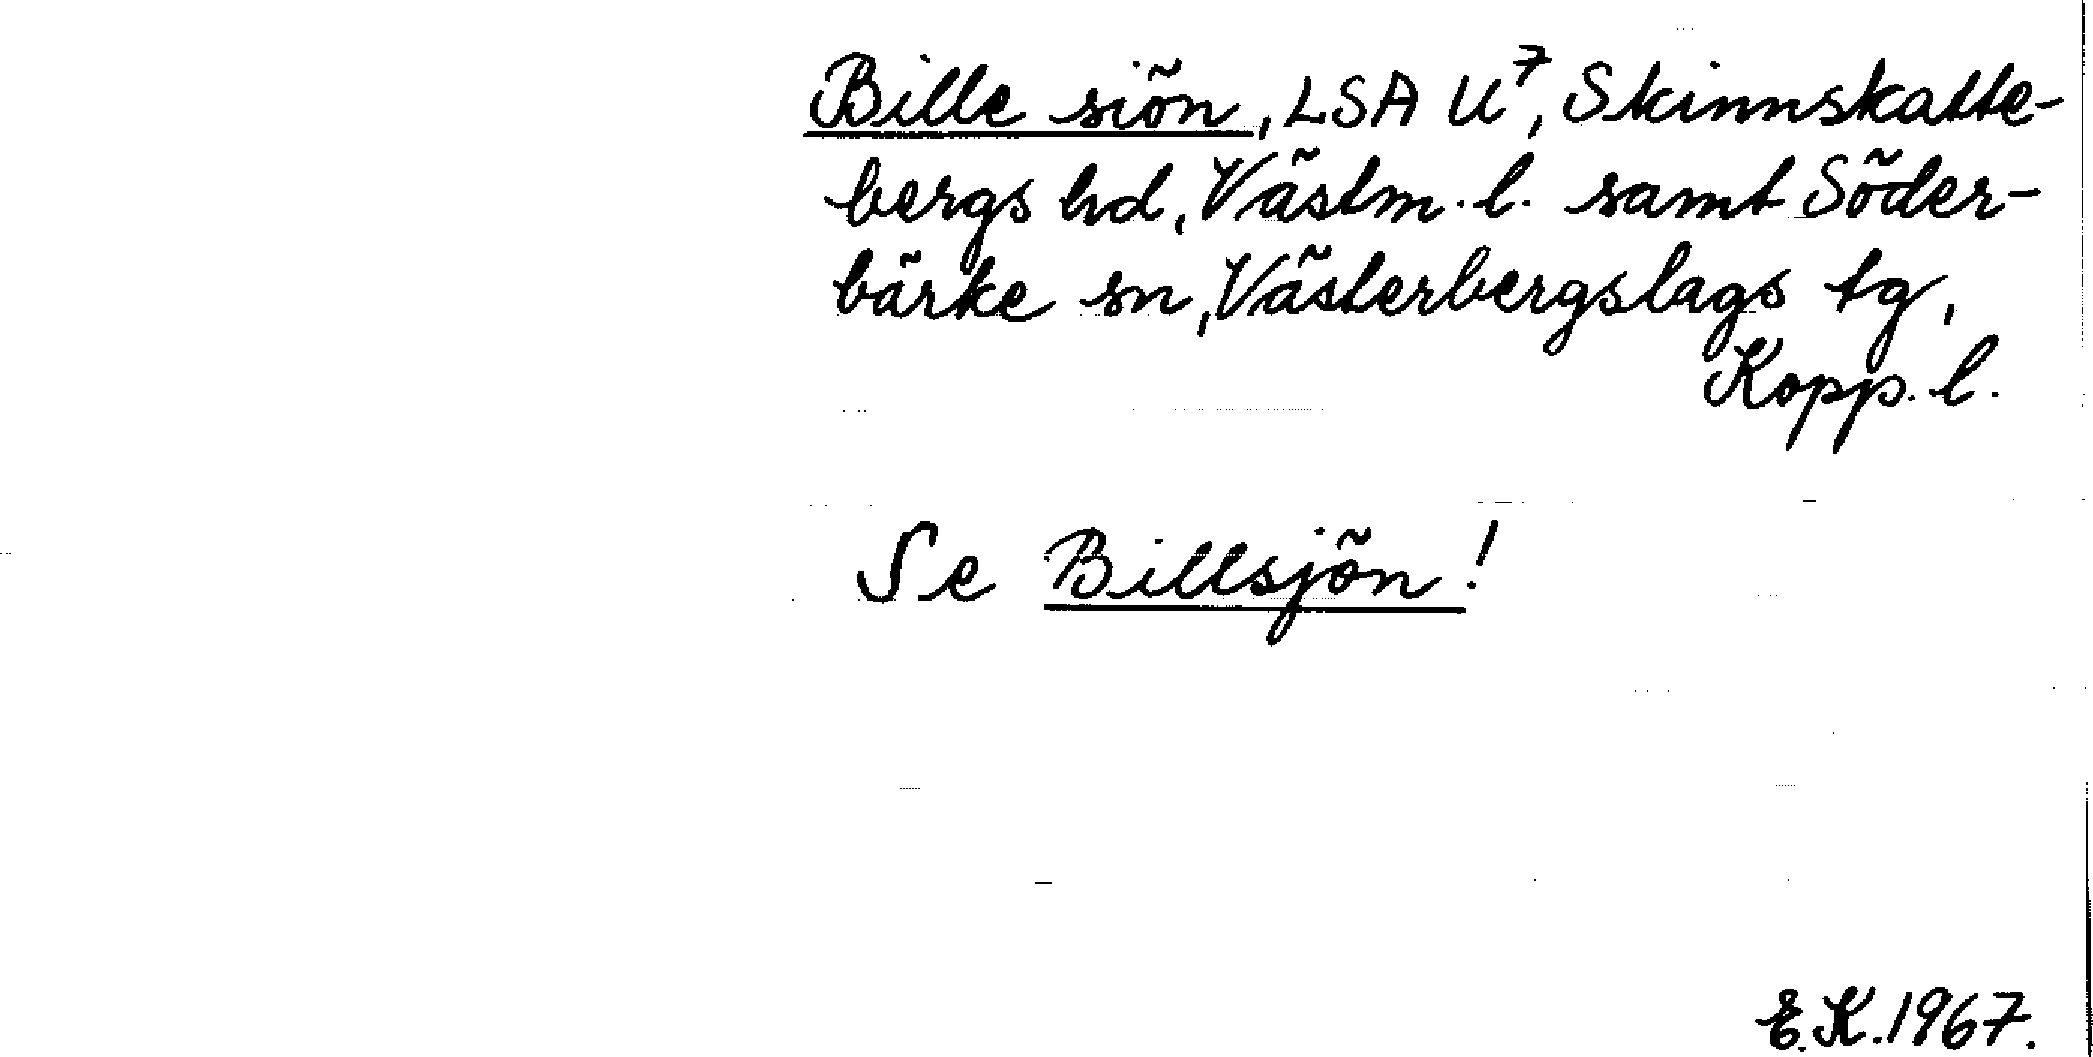 Bille siön, LSA U⁷, Skinnskatte-
bergs hd, Västm. l. samt Söder-
bärke sn, Västerbergslags tg,
Kopp. l.
Se Billsjön!
E.K. 1967.